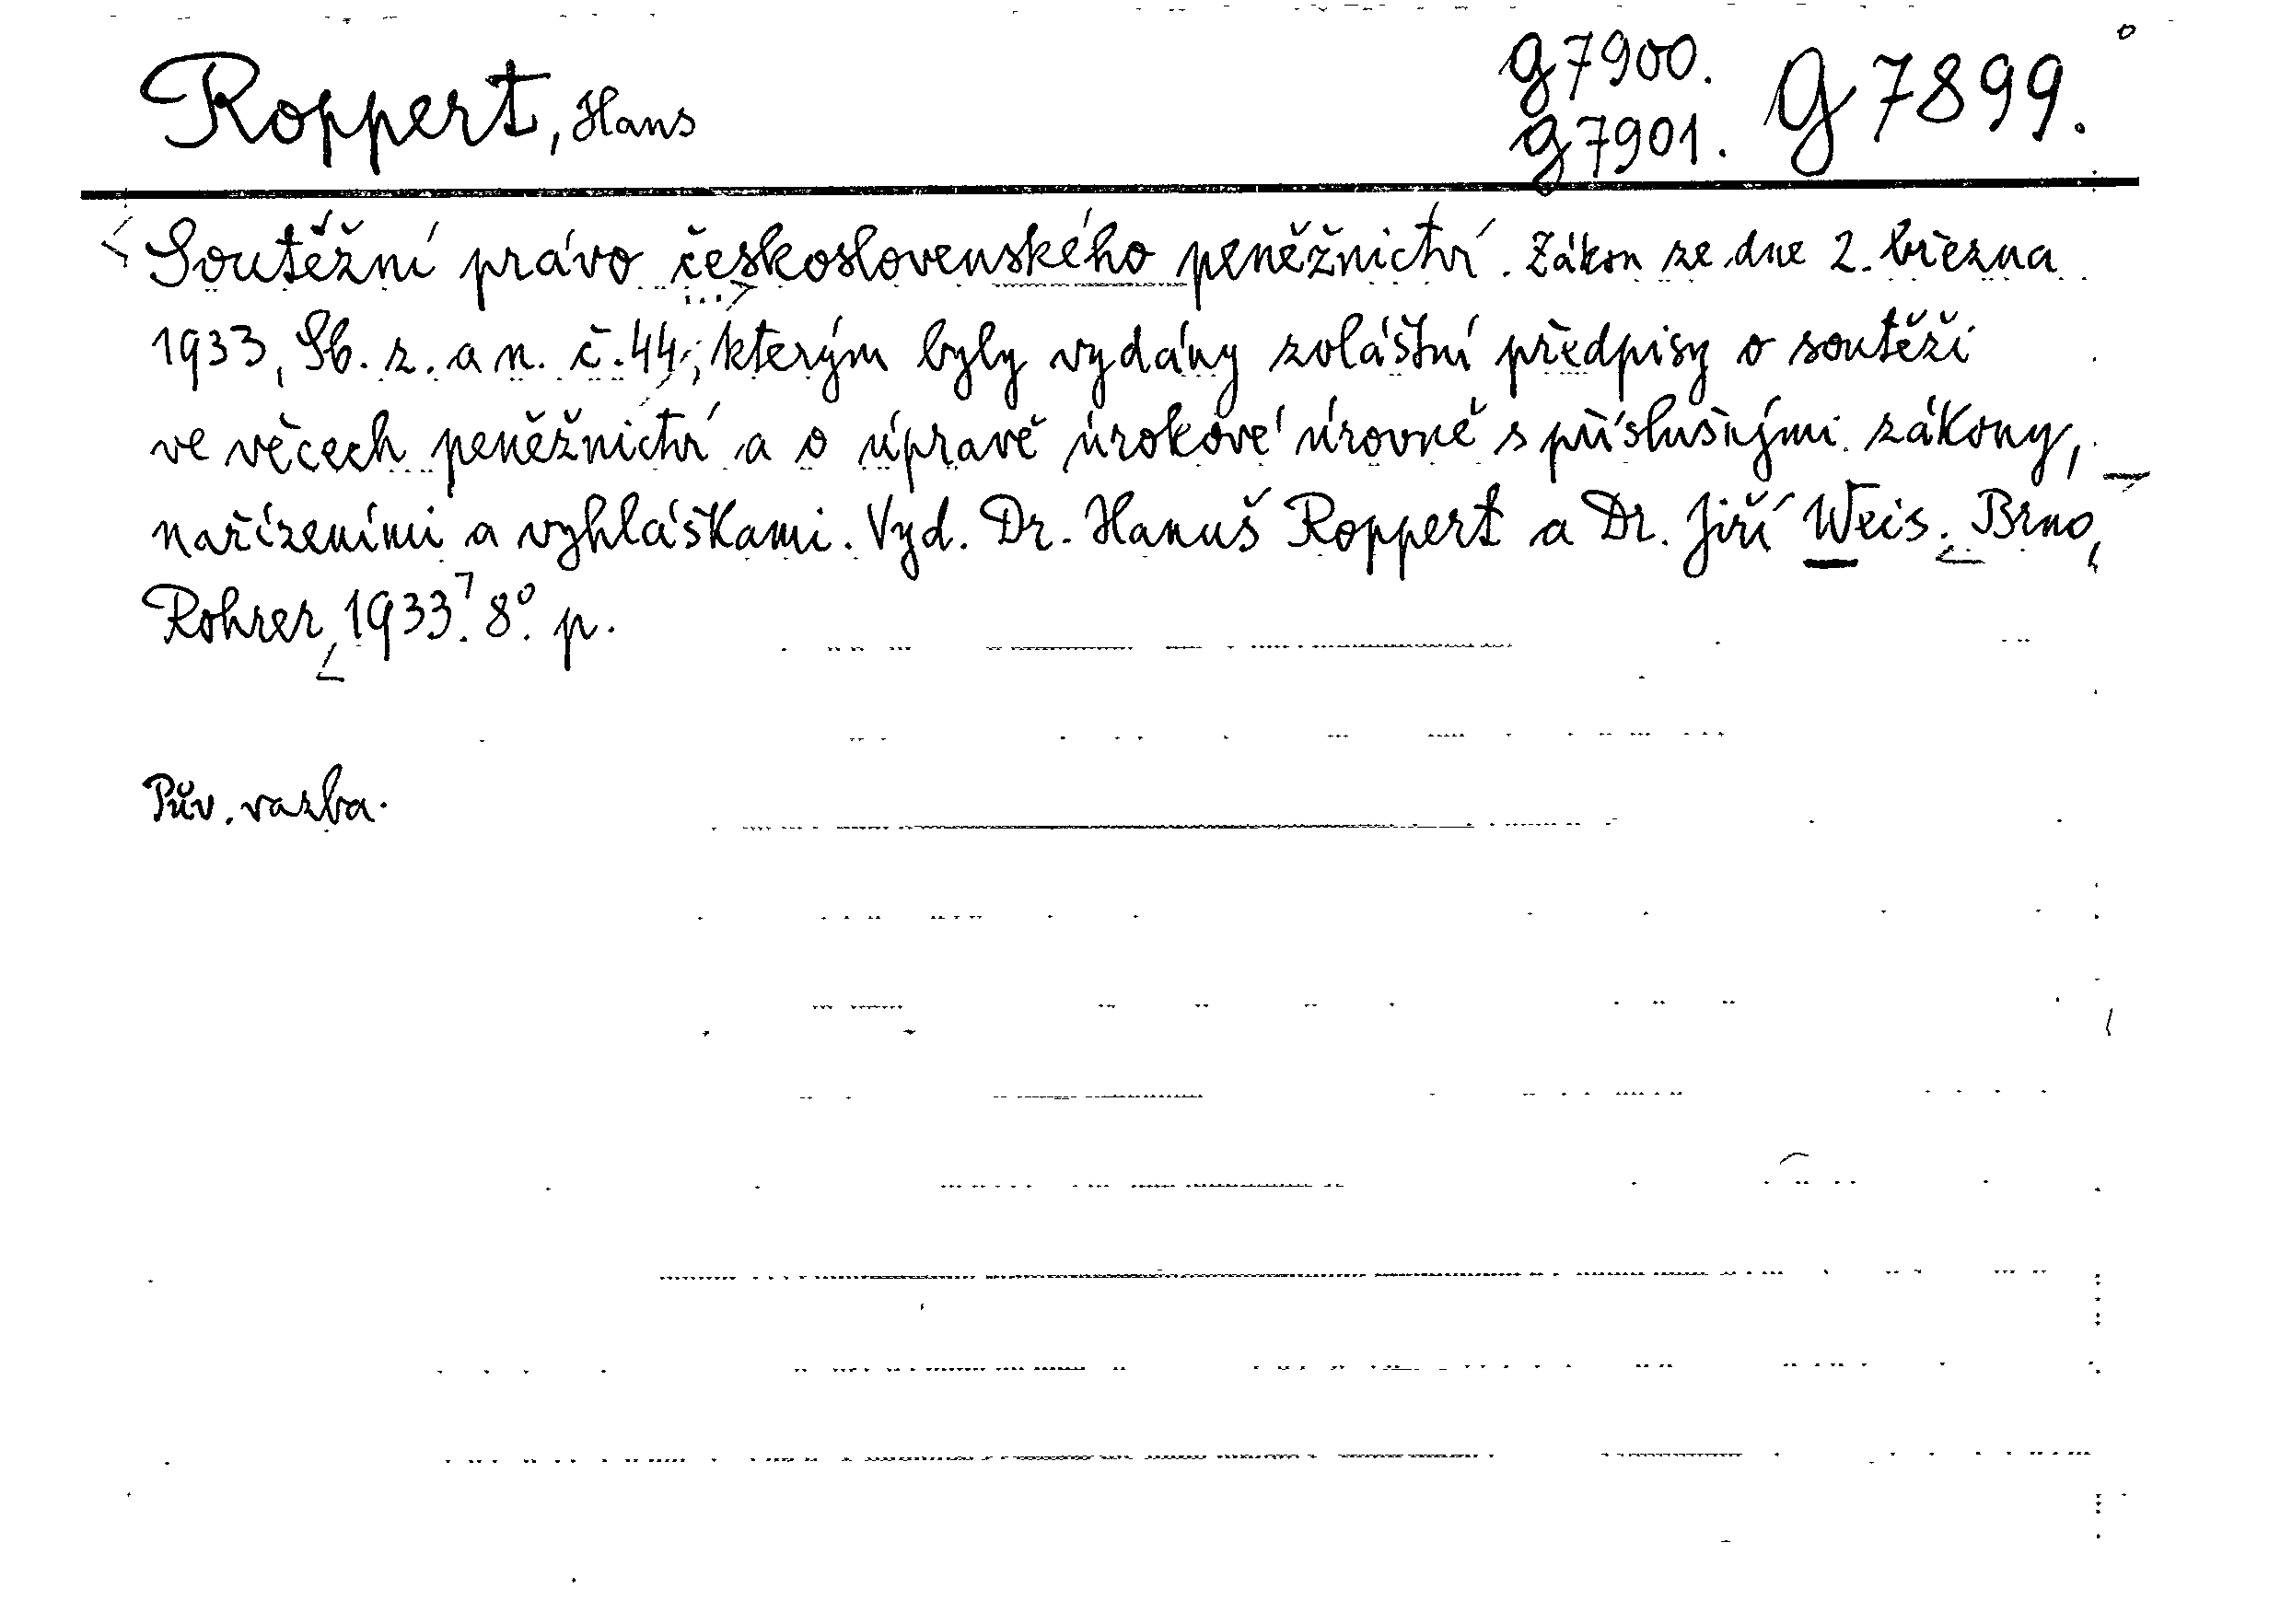 Roppert, Hans
g 7900.
g 7901. g 7899.
Soutěžní právo československého peněžnictví. Zákon ze dne 2. března
1933, Sb. z. a n. č. 44, kterým byly vydány zvláštní předpisy o soutěži
ve věcech peněžnictví a o úpravě úrokové úrovně s příslušnými zákony,
nařízeními a vyhláškami. Vyd. Dr. Hanuš Roppert a Dr. Jiří Weis. Brno,
Rohrer, 1933. 8°. p.
Pův. vazba.